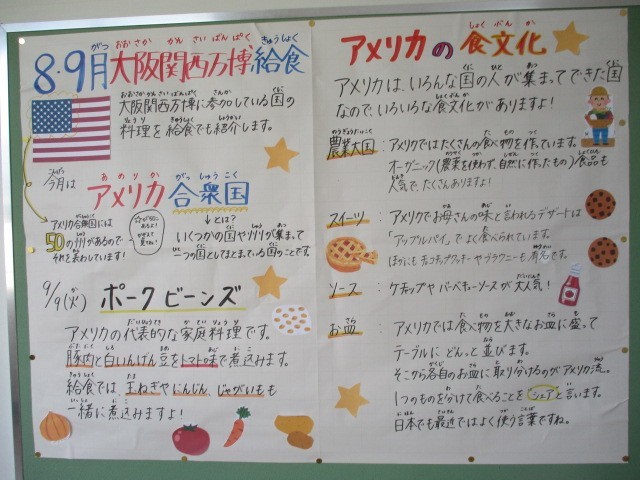 8・9月大阪関西万博給食
大阪関西万博に参加している国の
料理を給食でも紹介します。
今月は
アメリカ合衆国
アメリカ合衆国には
50の州があるので
それを表わしています！
↓とは？
いくつかの国や州が集まって
一つの国としてまとまっている国のことです。
9/9(火) ポークビーンズ
アメリカの代表的な家庭料理です。
豚肉と白いんげん豆をトマト味で煮込みます。
給食では、玉ねぎやにんじん、じゃがいもも
一緒に煮込みますよ！
アメリカの食文化
アメリカは、いろんな国の人が集まってできた国
なので、いろいろな食文化がありますよ！
農業大国：アメリカではたくさんの食べ物を作っています。
オーガニック(農薬を使わず、自然に作ったもの)食品も
人気で、たくさんありますよ！
スイーツ：アメリカでお母さんの味と言われるデザートは
「アップルパイ」でよく食べられています。
ほかにもチョコチップクッキーやブラウニーも有名です。
ソース：ケチャップやバーベキューソースが大人気！
お皿：アメリカでは食べ物を大きなお皿に盛って
テーブルにどんっと並びます。
そこから各自のお皿に取り分けるのがアメリカ流。
1つのものを分けて食べることをシェアと言います。
日本でも最近ではよく使う言葉ですね。